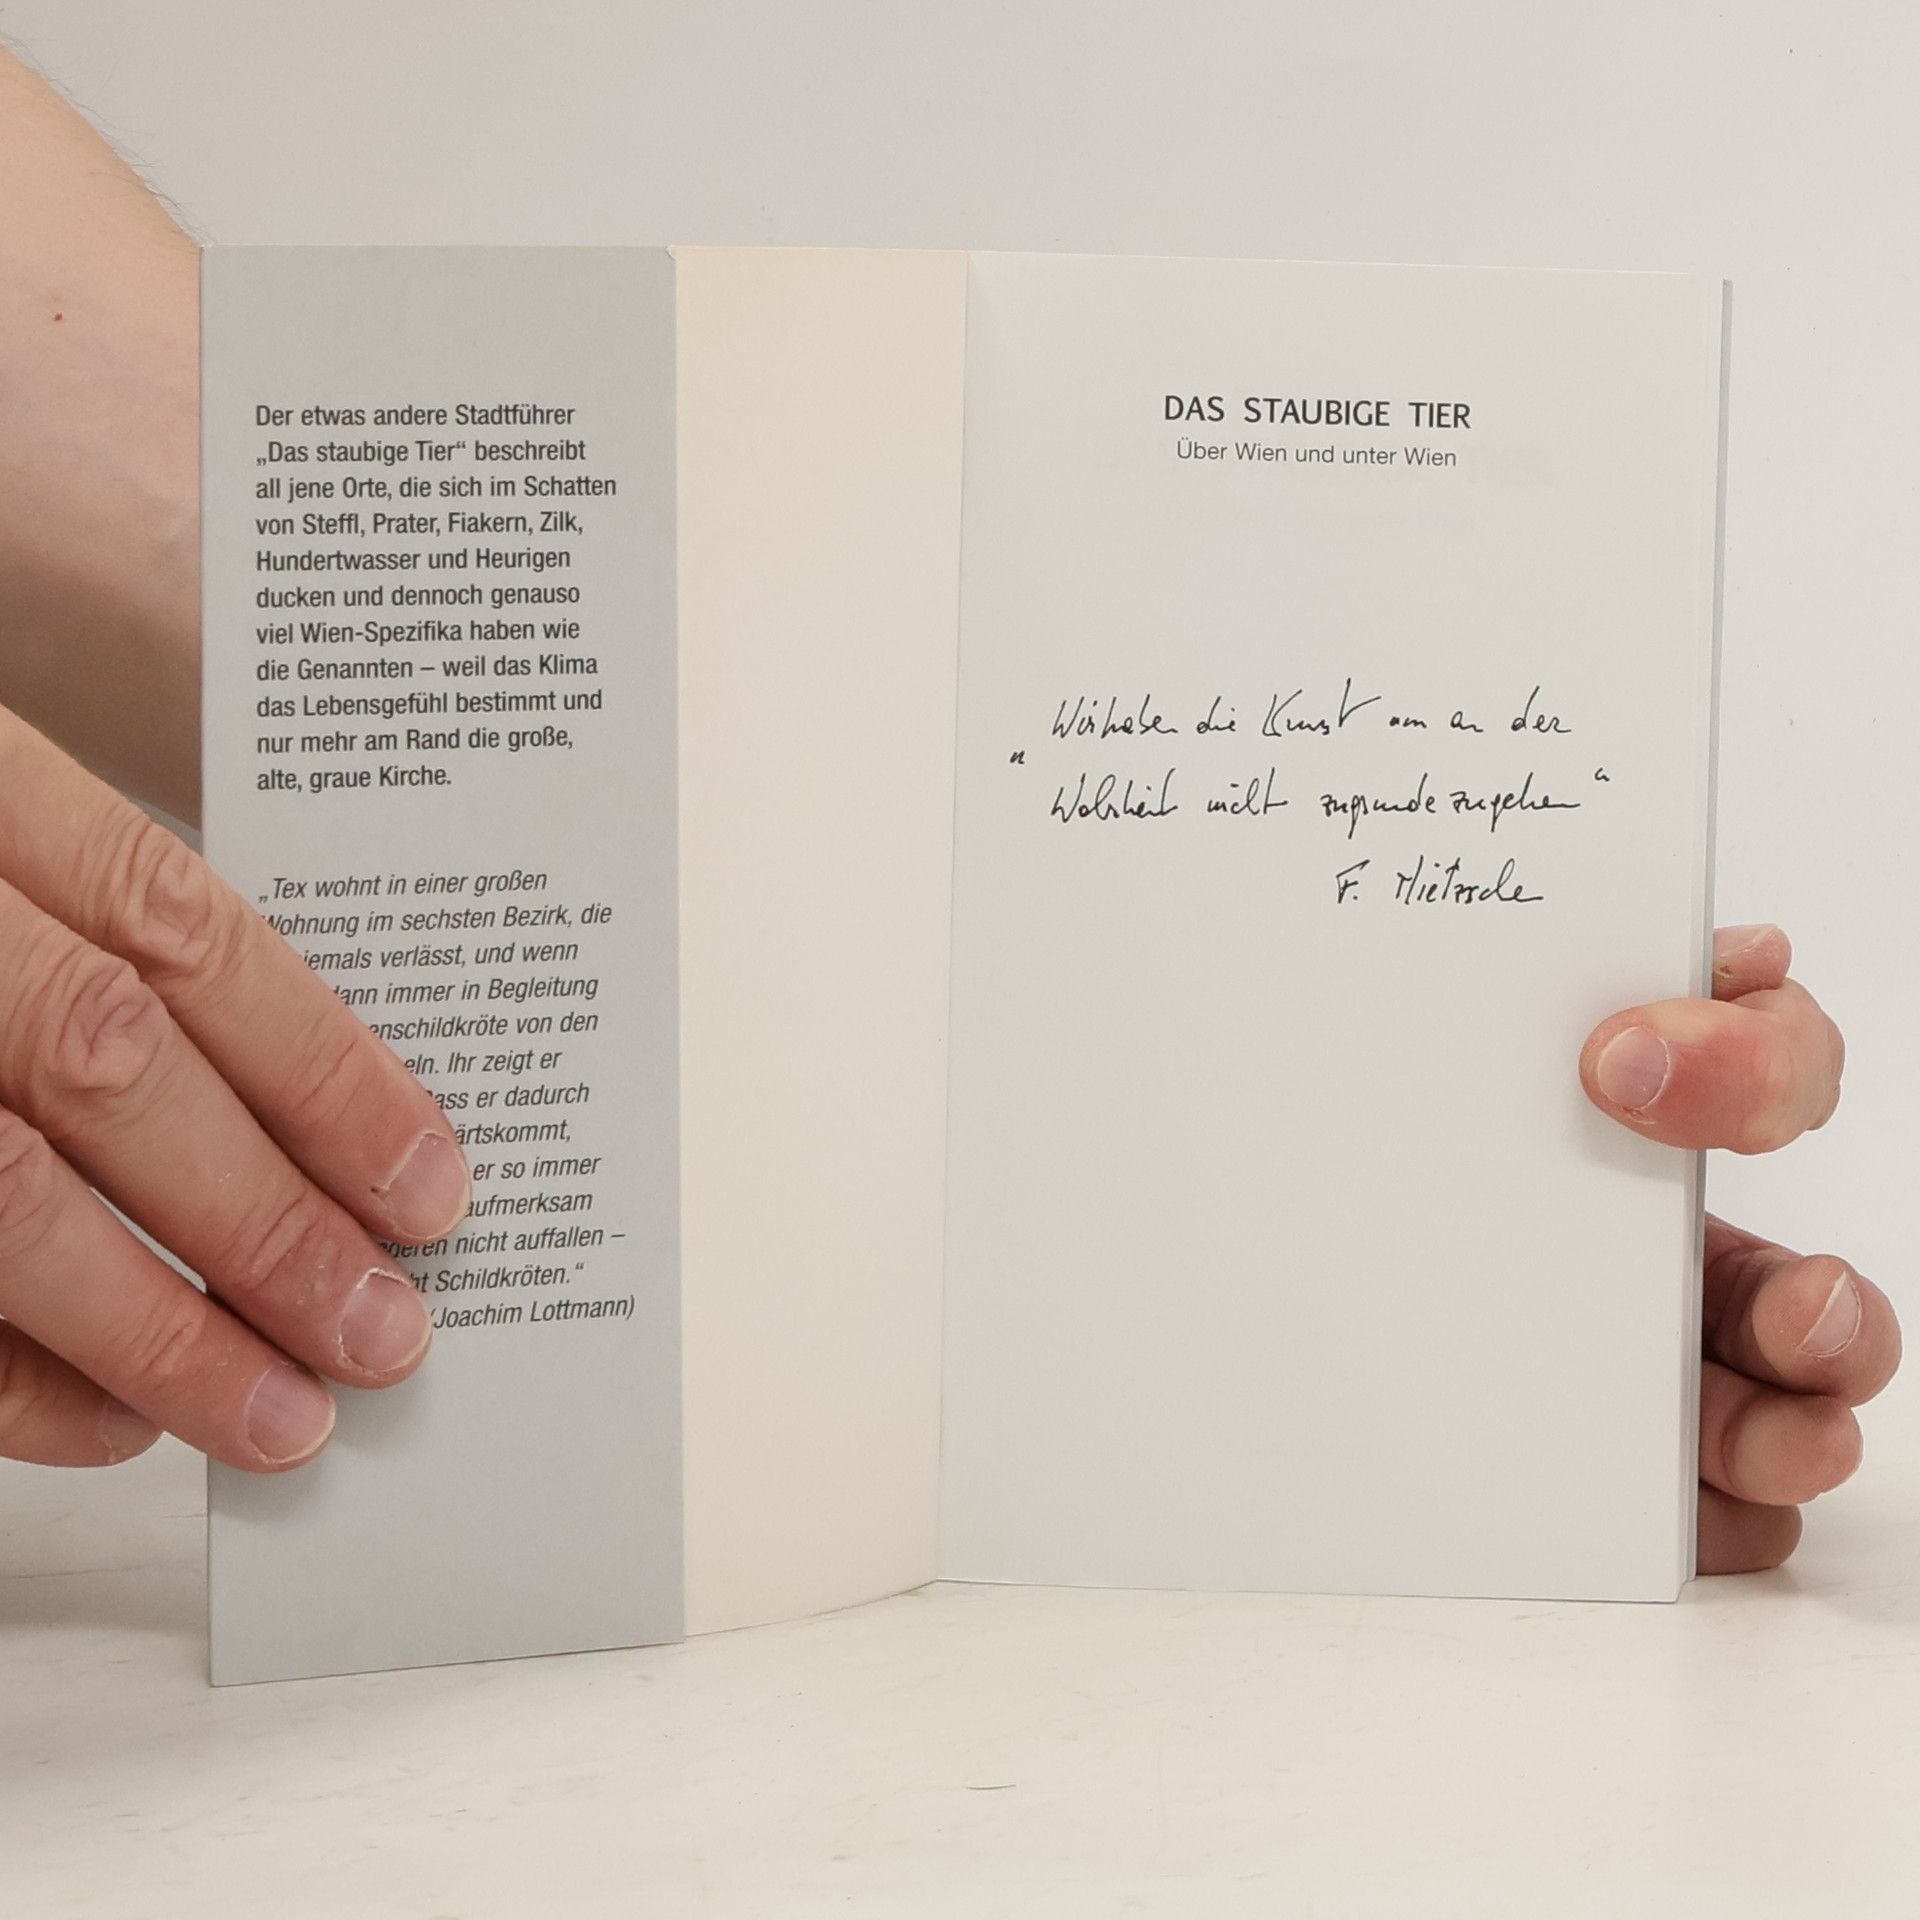 Der etwas andere Stadtführer
„Das staubige Tier“ beschreibt
all jene Orte, die sich im Schatten
von Steffl, Prater, Fiakern, Zilk,
Hundertwasser und Heurigen
ducken und dennoch genauso
viel Wien-Spezifika haben wie
die Genannten – weil das Klima
das Lebensgefühl bestimmt und
nur mehr am Rand die große,
alte, graue Kirche.
„Tex wohnt in einer großen
Wohnung im sechsten Bezirk, die
verlässt, und wenn
immer in Begleitung
von den
Ihr zeigt er
er dadurch
er so immer
aufmerksam
nicht auffallen –
Schildkröten.“
(Joachim Lottmann)
DAS STAUBIGE TIER
Über Wien und unter Wien
„Wir haben die Kunst um an der
Wahrheit nicht zugrunde zugehen“
F. Nietzsche